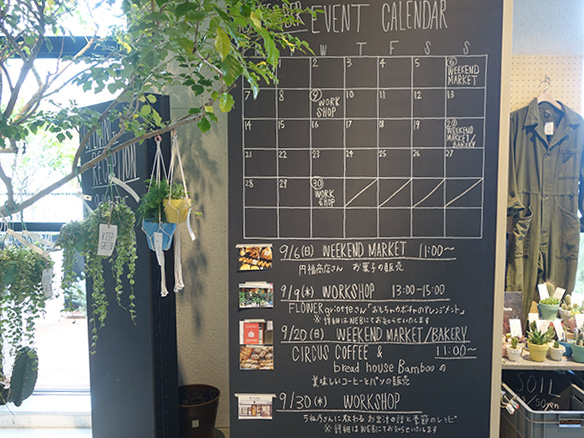 EVENT CALENDAR
W T F S S
2 3 4 5 6 WEEKEND MARKET
7 8 9 WORK SHOP 10 11 12 13
14 15 16 17 18 19 20 WEEKEND MARKET/BAKERY
21 22 23 24 25 26 27
28 29 30 WORK SHOP
9/6(日) WEEKEND MARKET 11:00〜
円福商店さん お菓子の販売
9/9(水) WORKSHOP 13:00-15:00
FLOWER さん「おもちゃカボチャのアレンジメント」
※詳細はWEBにてお知らせいたします
9/20(日) WEEKEND MARKET/BAKERY
CIRCUS COFFEE & 11:00〜
bread house Bamboo の
美味しいコーヒーとパンの販売
9/30(水) WORKSHOP
さんに教わる お出汁の話と季節のレシピ
※詳細はWEBにてお知らせいたします
PLANT
KEEP GREEN
SOIL